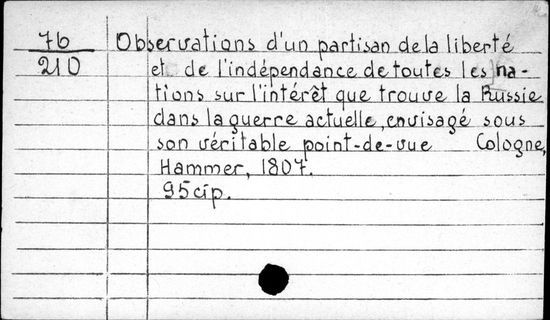 76 Observations d'un partisan de la liberté
210 et de l'indépendance de toutes les na-
tions sur l'intérêt que trouve la Russie
dans la guerre actuelle, envisagé sous
son véritable point-de-vue Cologne,
Hammer, 1807.
95 cip.